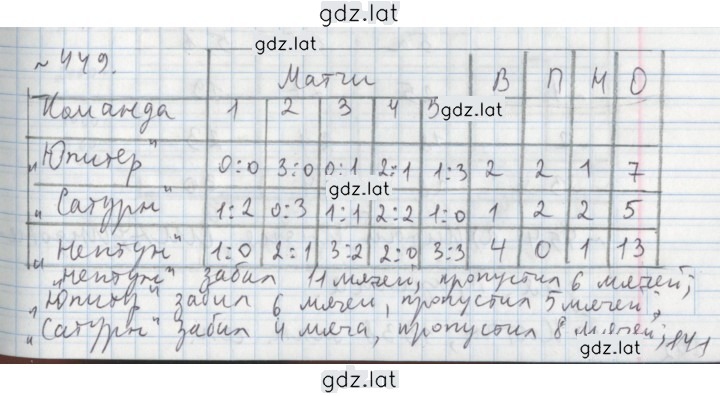 gdz.lat
№ 449.
gdz.lat
Матчи В П Н О
Команда 1 2 3 4 5
gdz.lat
„Юпитер" 0:0 3:0 0:1 2:1 1:3 2 2 1 7
gdz.lat
„Сатурн" 1:2 0:3 1:1 2:2 1:0 1 2 2 5
„Нептун" 1:0 2:1 3:2 2:0 3:3 4 0 1 13
„Нептун" забил 11 мячей, пропустил 6 мячей;
„Юпитер" забил 6 мячей, пропустил 5 мячей;
„Сатурн" забил 4 мяча, пропустил 8 мячей;
gdz.lat
gdz.lat